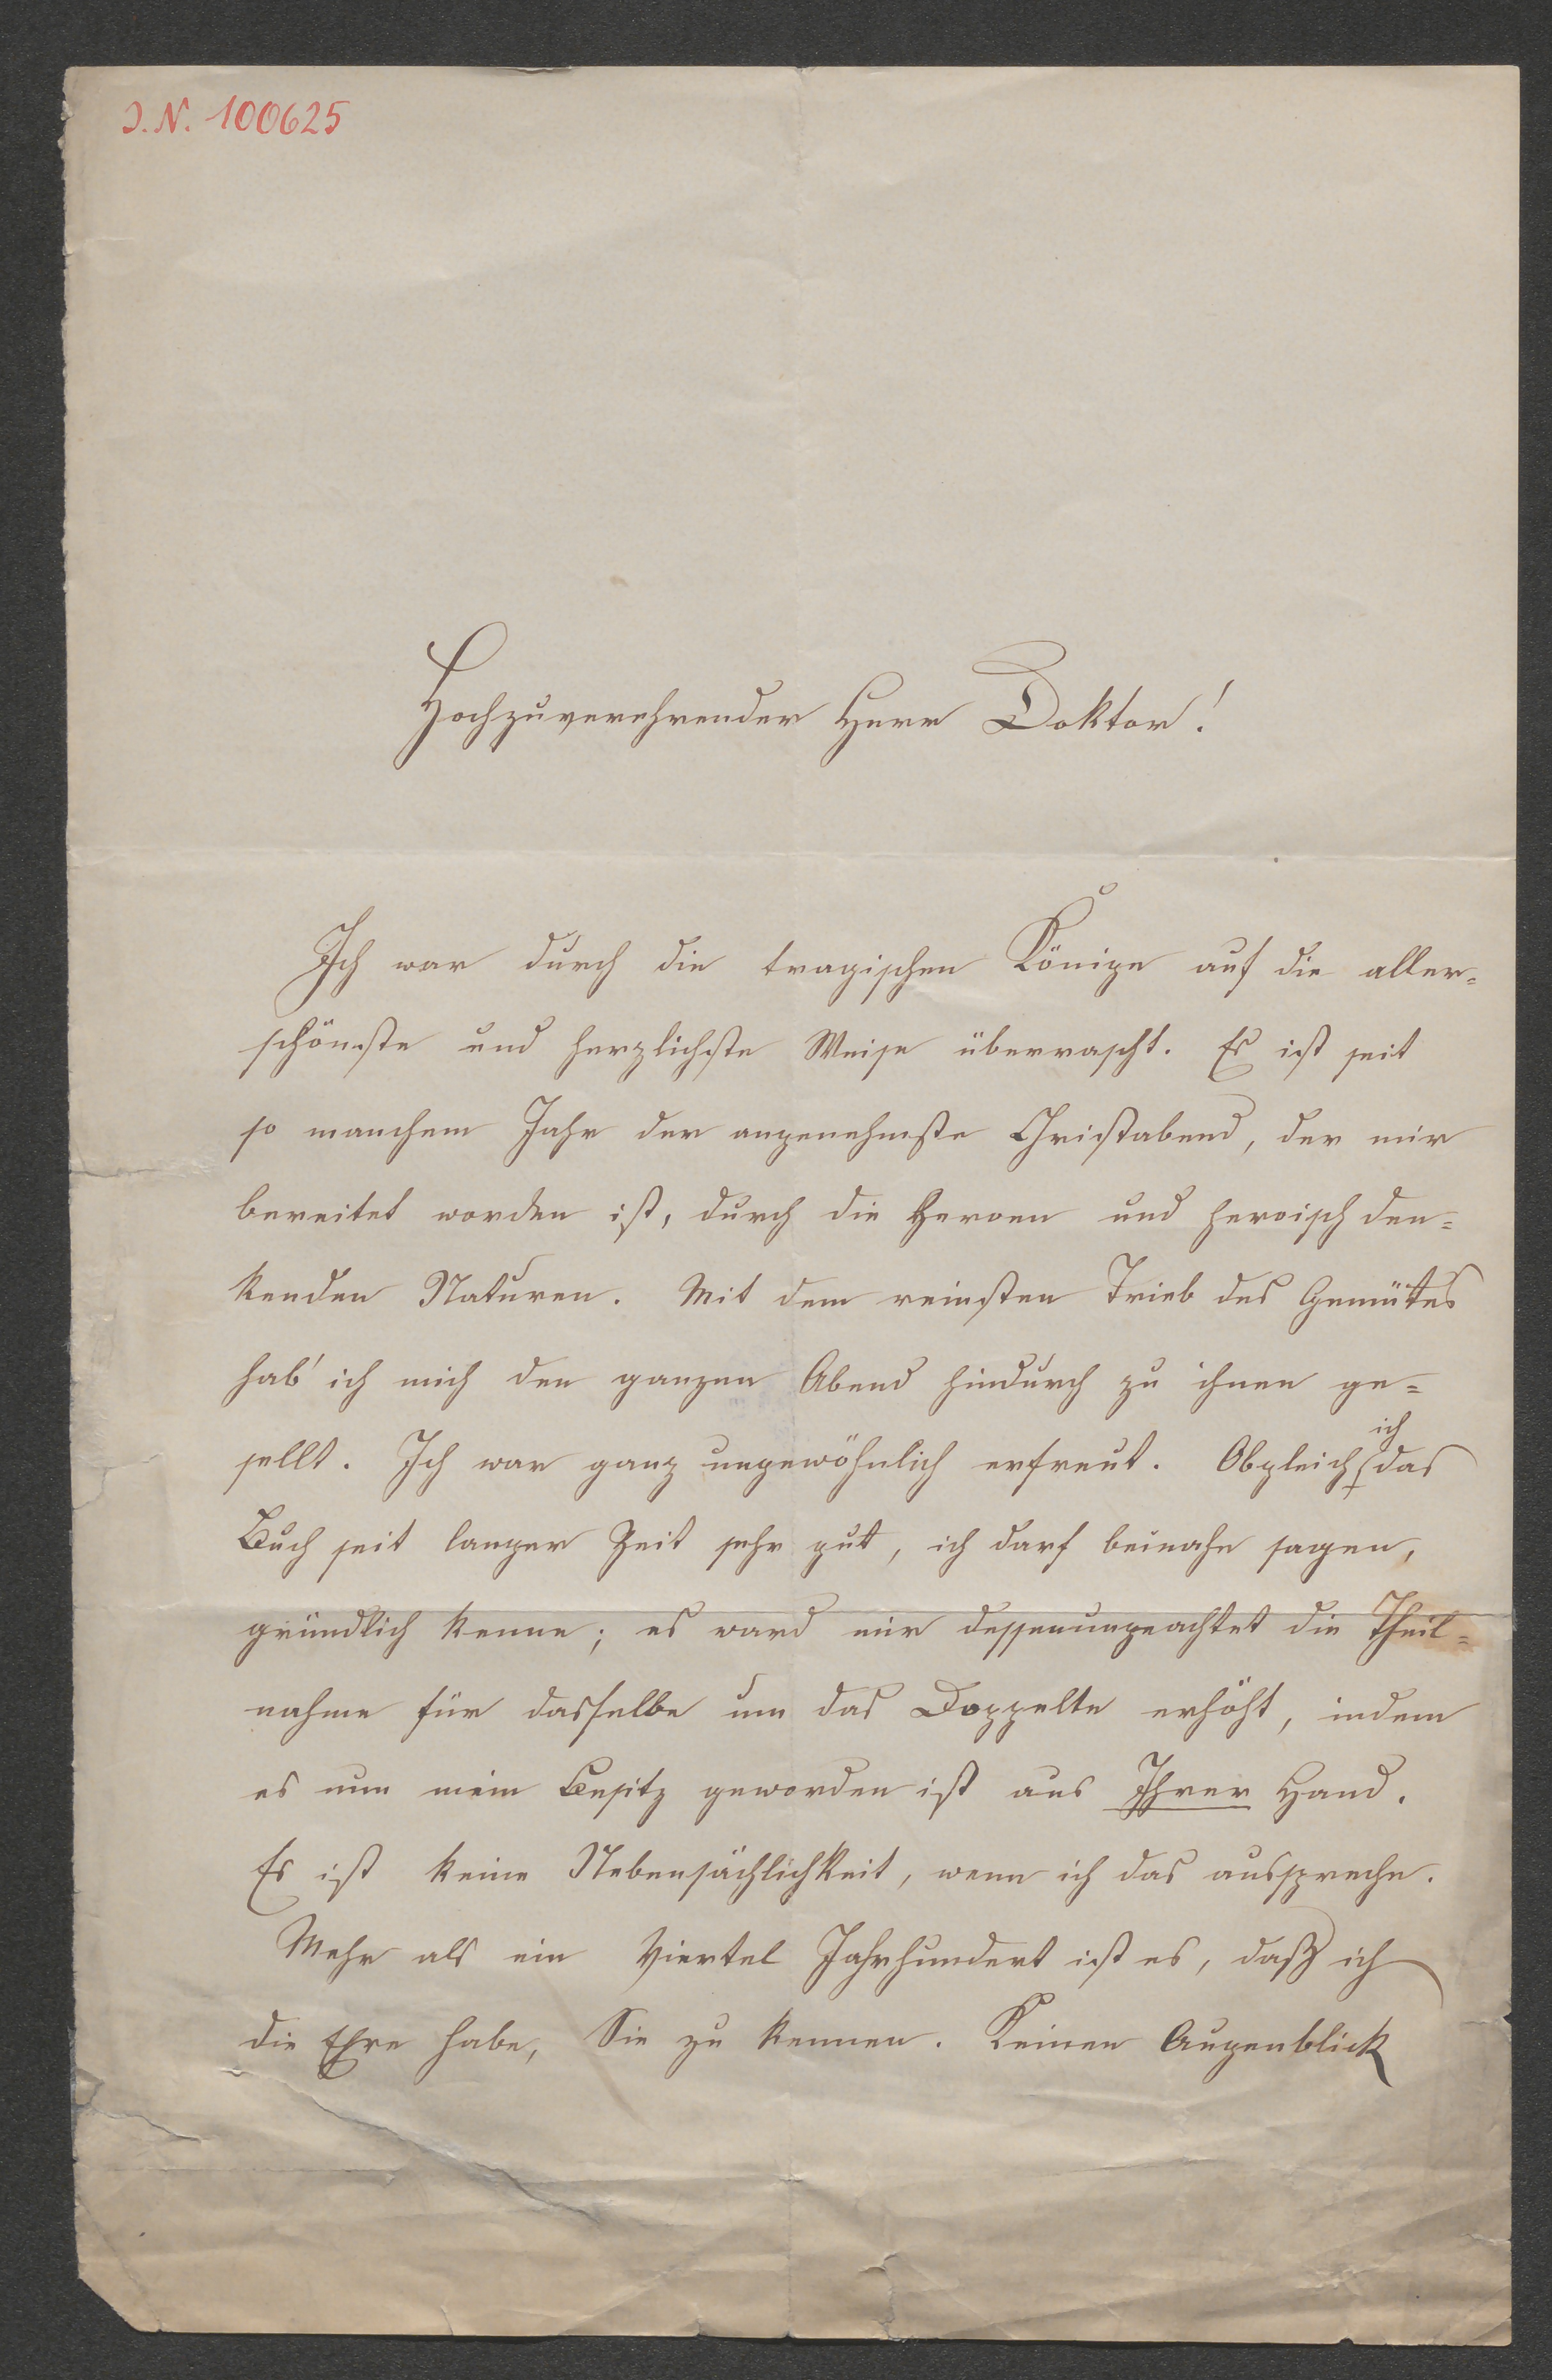 J. N. 100625
Hochzuverehrender Herr Doktor!
Ich war durch die tragischen Könige auf die aller=
schönste und herzlichste Weise überrascht. Es ist seit
so manchem Jahr der angenehmste Christabend, der mir
bereitet worden ist, durch die Heroen und heroisch den=
kenden Naturen. Mit dem reinsten Trieb des Gemütes
hab' ich mich den ganzen Abend hindurch zu ihnen ge=
ich
sellt. Ich war ganz ungewöhnlich erfreut. Obgleich das
Buch seit langer Zeit sehr gut, ich darf beinahe sagen,
gründlich kenne; es ward mir dessenungeachtet die Theil=
nahme für dasselbe um das Doppelte erhöht, indem
es nun mein Besitz geworden ist aus Ihrer Hand.
Es ist keine Nebensächlichkeit, wenn ich das ausspreche.
Mehr als ein Viertel Jahrhundert ist es, daß ich
die Ehre habe, Sie zu kennen. Keinen Augenblick